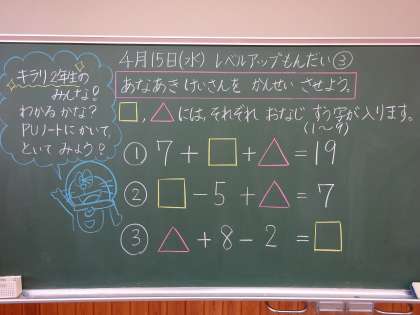 4月15日(水) レベルアップもんだい③
キラリ2年生の
みんな!
わかるかな?
PUノートにかいて、
といてみよう?
あなあきけいさんを かんせい させよう。
□, △には、それぞれ おなじ すう字が入ります。
(1~9)
① 7+□+△=19
② □-5+△=7
③ △+8-2=□